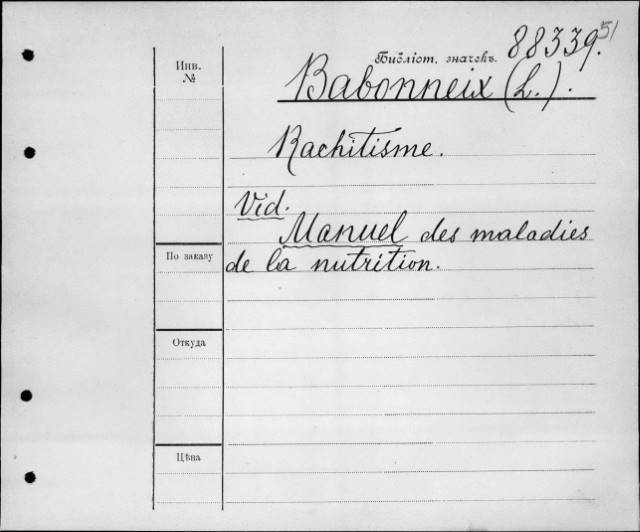 Инв.
№
Библіот. значекъ.
88339.51
Babonneix (L.).
Rachitisme.
Vid.
Manuel des maladies
de la nutrition.
По заказу
Откуда
Цѣна